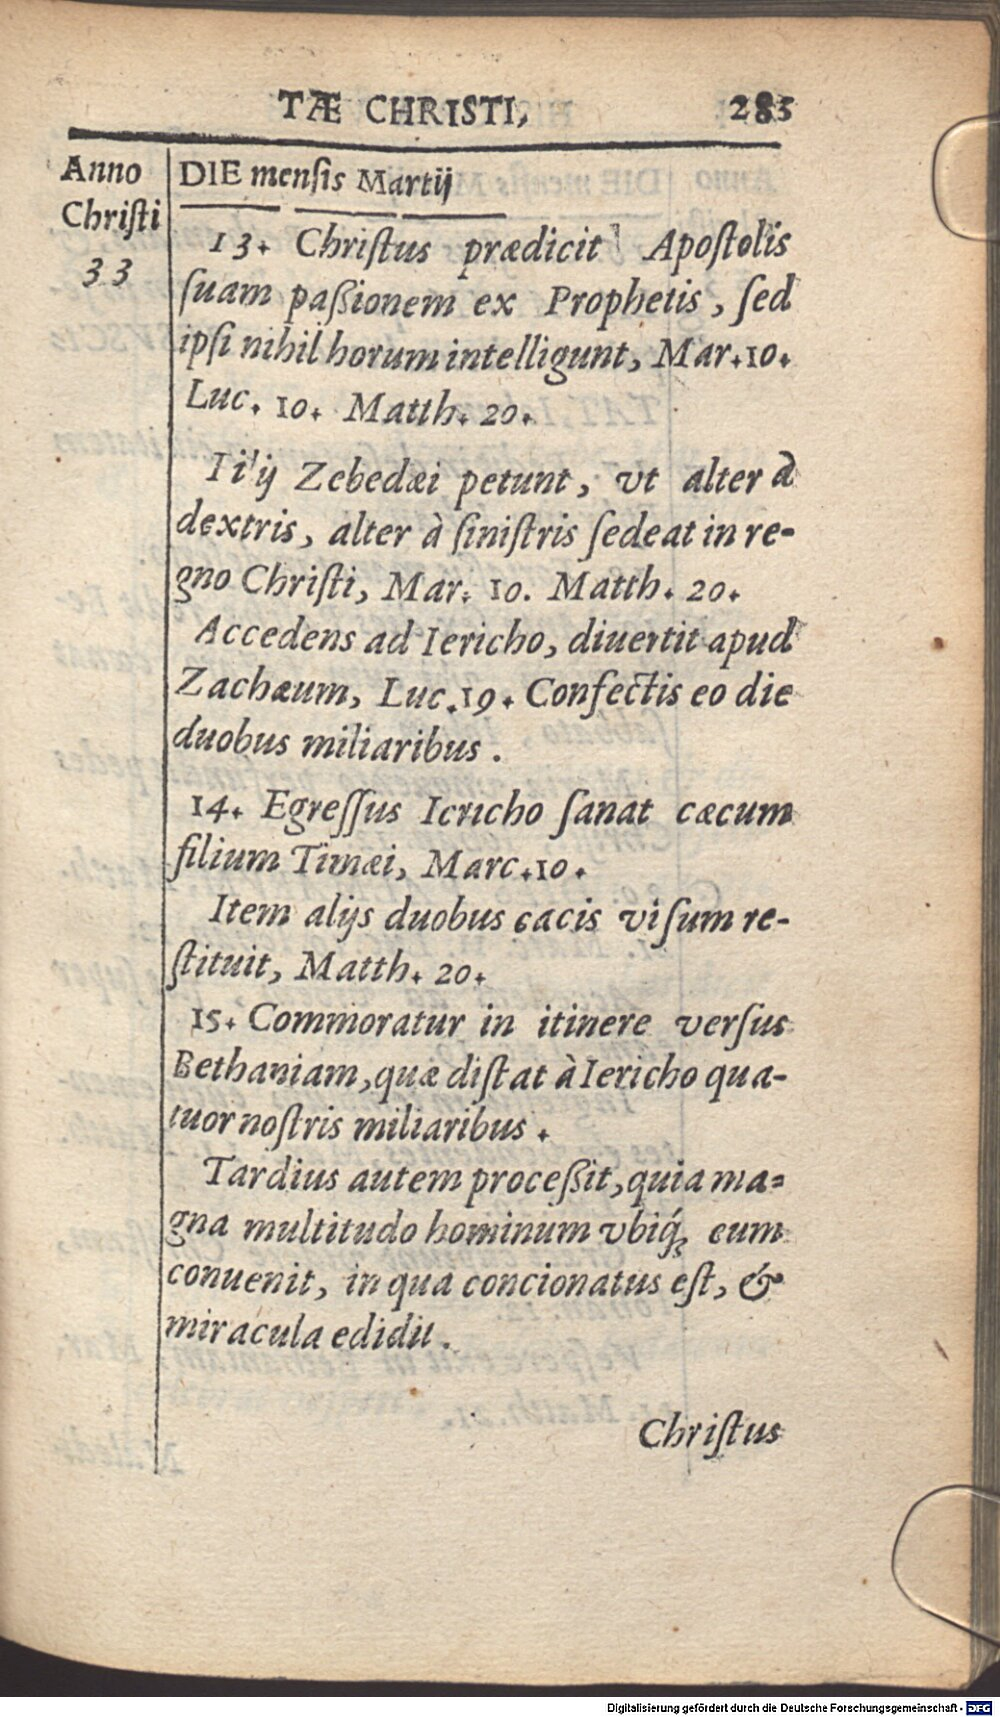 TÆ CHRISTI,
285
Anno
Chriſti
33
DIE menſis Martij
13. Chriſtus prædicit Apoſtolis
ſuam paßionem ex Prophetis, ſed
ipſi nihil horum intelligunt, Mar.10.
Luc. 10. Matth. 20.
Filij Zebedæi petunt, vt alter à
dextris, alter à ſiniſtris ſedeat in re-
gno Chriſti, Mar. 10. Matth. 20.
Accedens ad Iericho, diuertit apud
Zachæum, Luc.19. Confectis eo die
duobus miliaribus.
14. Egreſſus Iericho ſanat cæcum
filium Timæi, Marc.10.
Item alijs duobus cæcis viſum re-
ſtituit, Matth. 20.
15. Commoratur in itinere verſus
Bethaniam, quæ diſtat à Iericho qua-
tuor noſtris miliaribus.
Tardius autem proceßit, quia ma-
gna multitudo hominum vbiq́; eum
conuenit, in qua concionatus eſt, &
miracula edidit.
Chriſtus
Digitalisierung gefördert durch die Deutsche Forschungsgemeinschaft - DFG